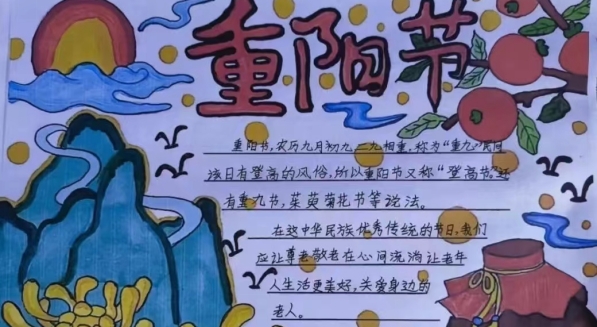 重阳节
重阳节,农历九月初九,二九相重,称为“重九”,民间
该日有登高的风俗,所以重阳节又称“登高节”,还
有重九节,茱萸菊花节等说法。
在这中华民族优秀传统的节日,我们
应让尊老敬老在心间流淌让老年
人生活更美好,关爱身边的
老人。